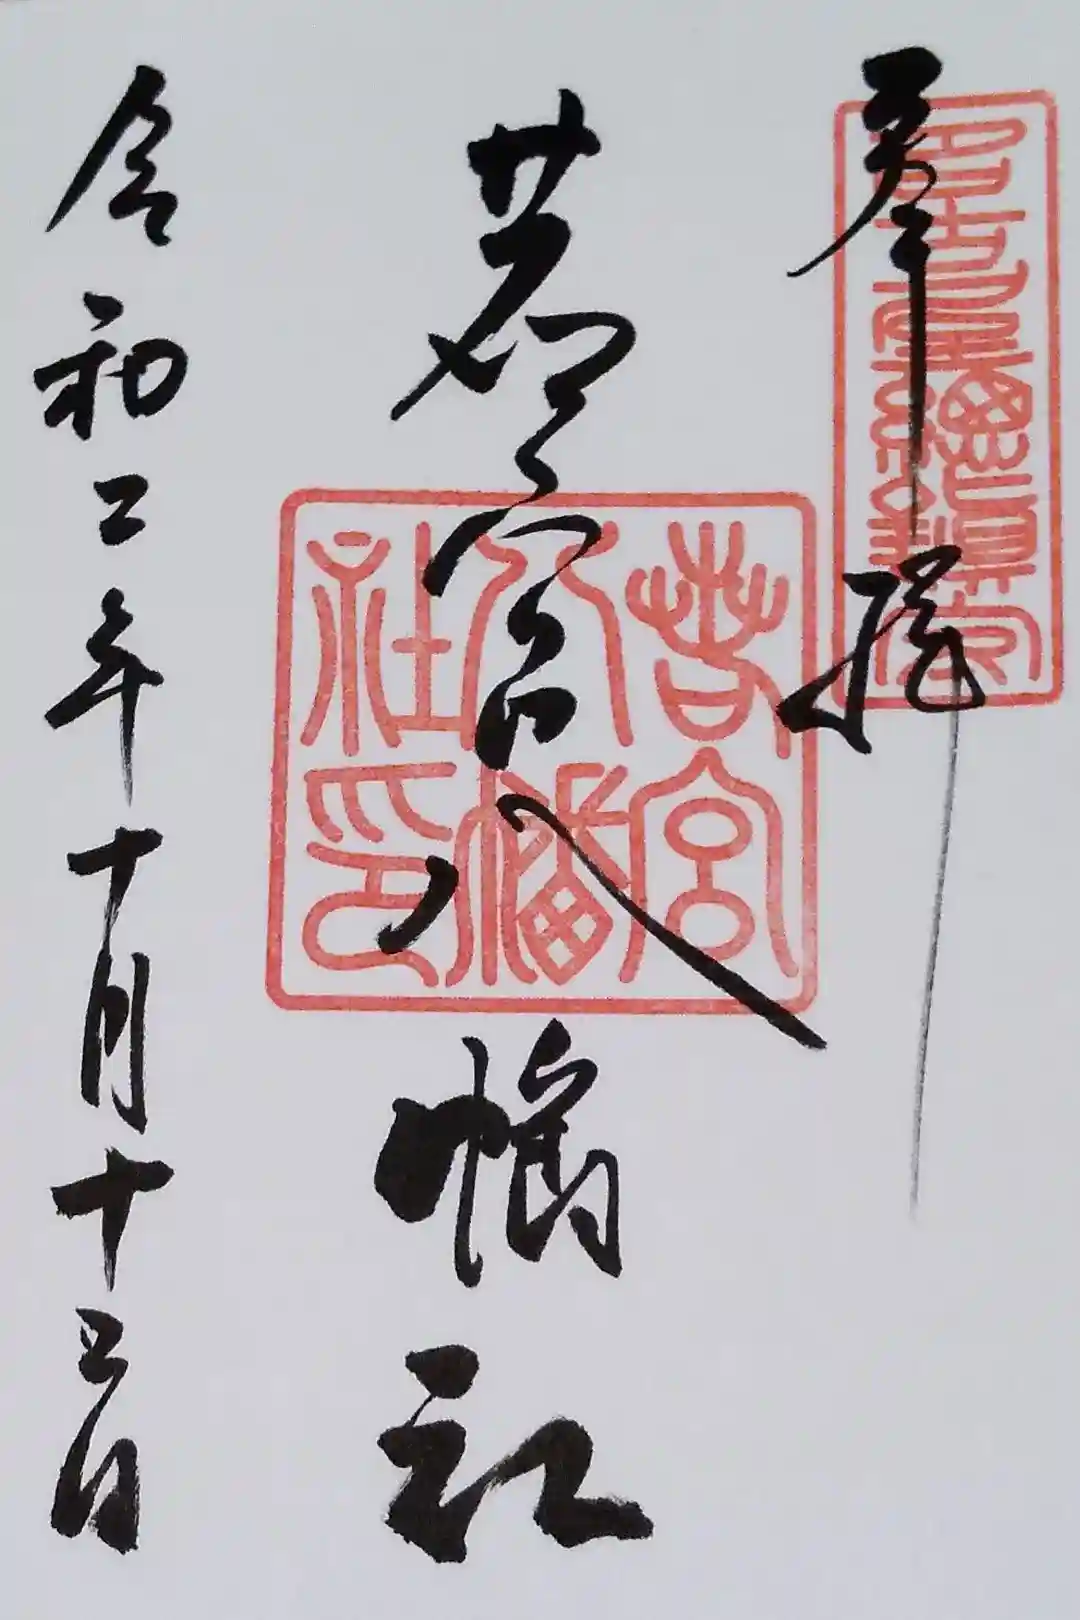 奉拝
若宮八幡社
若宮八幡社印
令和二年十月十三日